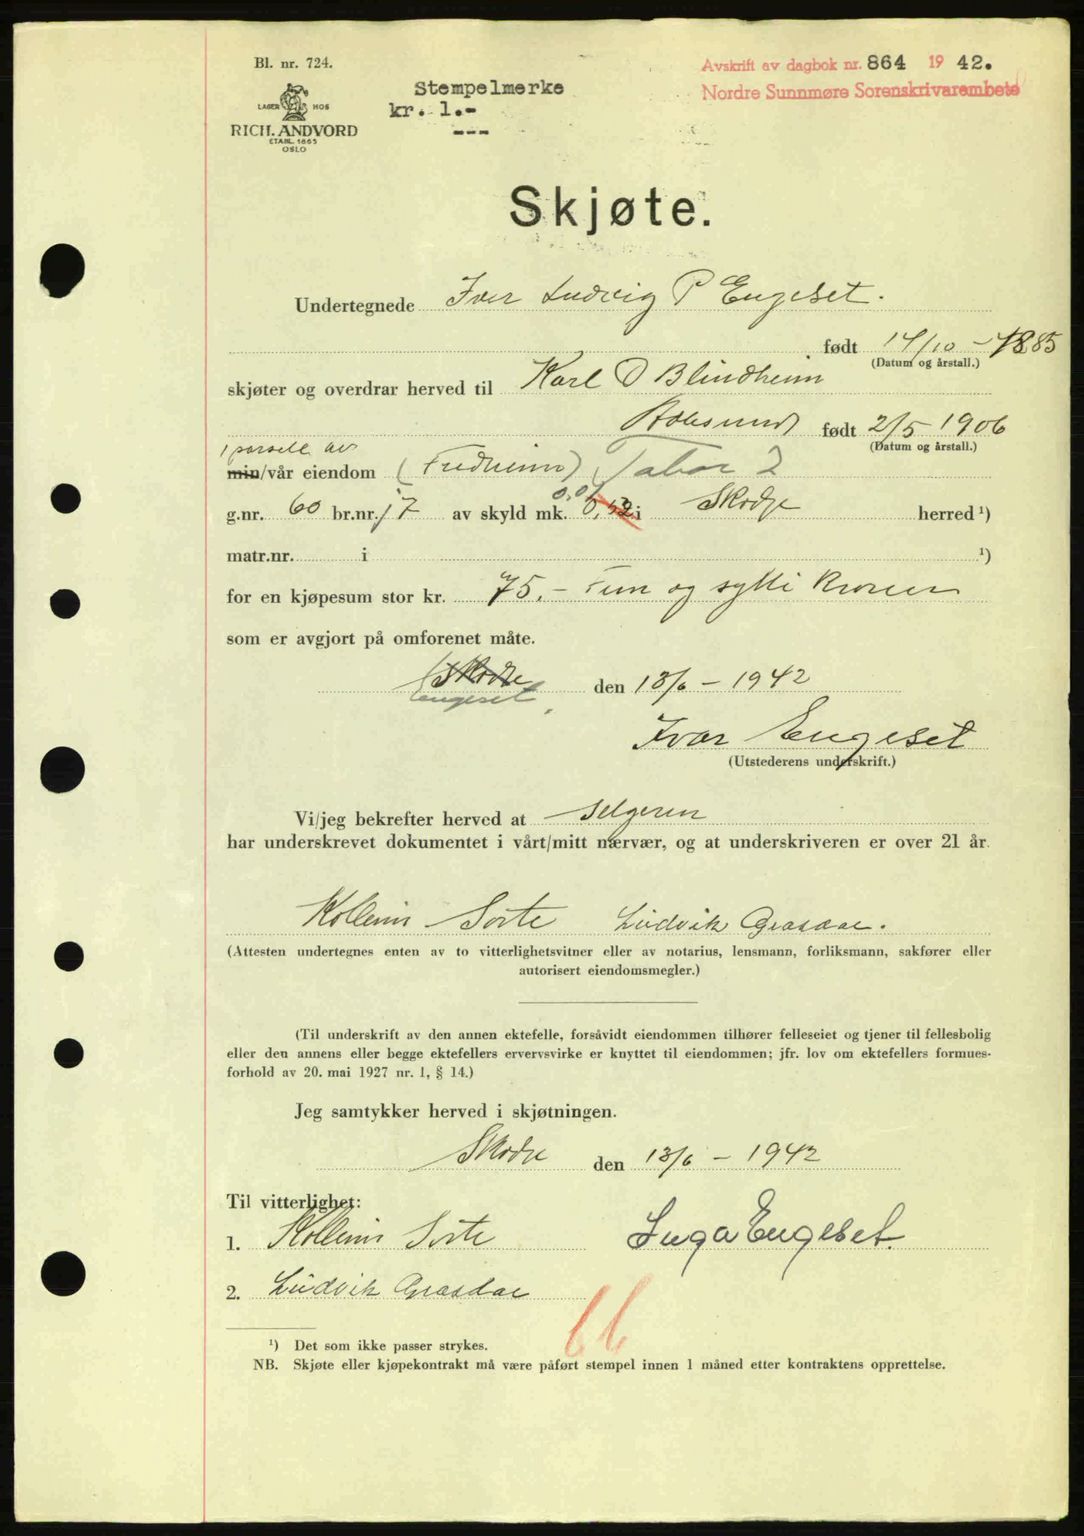 Bl. nr. 724.
LAGER HOS
RICH. ANDVORD
ETABL. 1865
OSLO
Stempelmerke
kr. 1.-
---
Avskrift av dagbok nr. 864 1942.
Nordre Sunnmøre Sorenskriverembete
Skjøte.
Undertegnede Iver Ludvig P Engeset.
født 14/10 - 1885
(Datum og årstall.)
skjøter og overdrar herved til Karl O Blindheim
Aalesund født 2/5 1906
(Datum og årstall.)
1 parsell av
min/vår eiendom (Fredheim) Tabor 2
0,01
g.nr. 60 br.nr. 17 av skyld mk. 0,52 i Skodje herred ¹)
matr.nr. i ¹)
for en kjøpesum stor kr. 75.- Fem og sytti kroner
som er avgjort på omforenet måte.
Skodje den 13/6 - 1942
Engeset
Ivar Engeset
(Utstederens underskrift.)
Vi/jeg bekrefter herved at Selgeren
har underskrevet dokumentet i vårt/mitt nærvær, og at underskriveren er over 21 år.
Sorte Ludvik Grasdal.
(Attesten undertegnes enten av to vitterlighetsvitner eller av notarius, lensmann, forliksmann, sakfører eller
autorisert eiendomsmegler.)
(Til underskrift av den annen ektefelle, forsåvidt eiendommen tilhører felleseiet og tjener til fellesbolig
eller den annens eller begge ektefellers ervervsvirke er knyttet til eiendommen; jfr. lov om ektefellers formues-
forhold av 20. mai 1927 nr. 1, § 14.)
Jeg samtykker herved i skjøtningen.
Skodje den 13/6 - 1942
Til vitterlighet:
1. Sorte Inga Engeset.
2. Ludvik Grasdal
66
¹) Det som ikke passer strykes.
NB. Skjøte eller kjøpekontrakt må være påført stempel innen 1 måned etter kontraktens opprettelse.